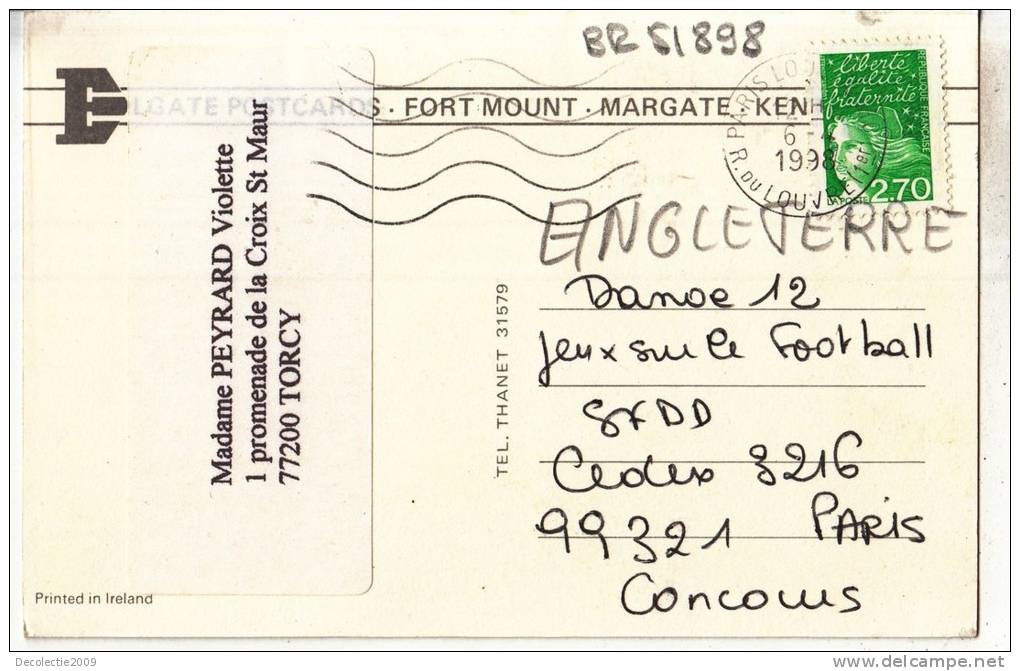 BR 51898
LGATE POSTCARDS · FORT MOUNT · MARGATE · KEN
PARIS LOU
6
1998
R. DU LOUVRE
liberté
égalité
fraternité
REPUBLIQUE FRANÇAISE
LA POSTE
2.70
ANGLETERRE
Madame PEYRARD Violette
1 promenade de la Croix St Maur
77200 TORCY
TEL. THANET 31579
Danoe 12
Jeux sur le Football
SFDD
Cedex 3216
99321 PARIS
Concours
Printed in Ireland
Decolectie2009
delcampe.net